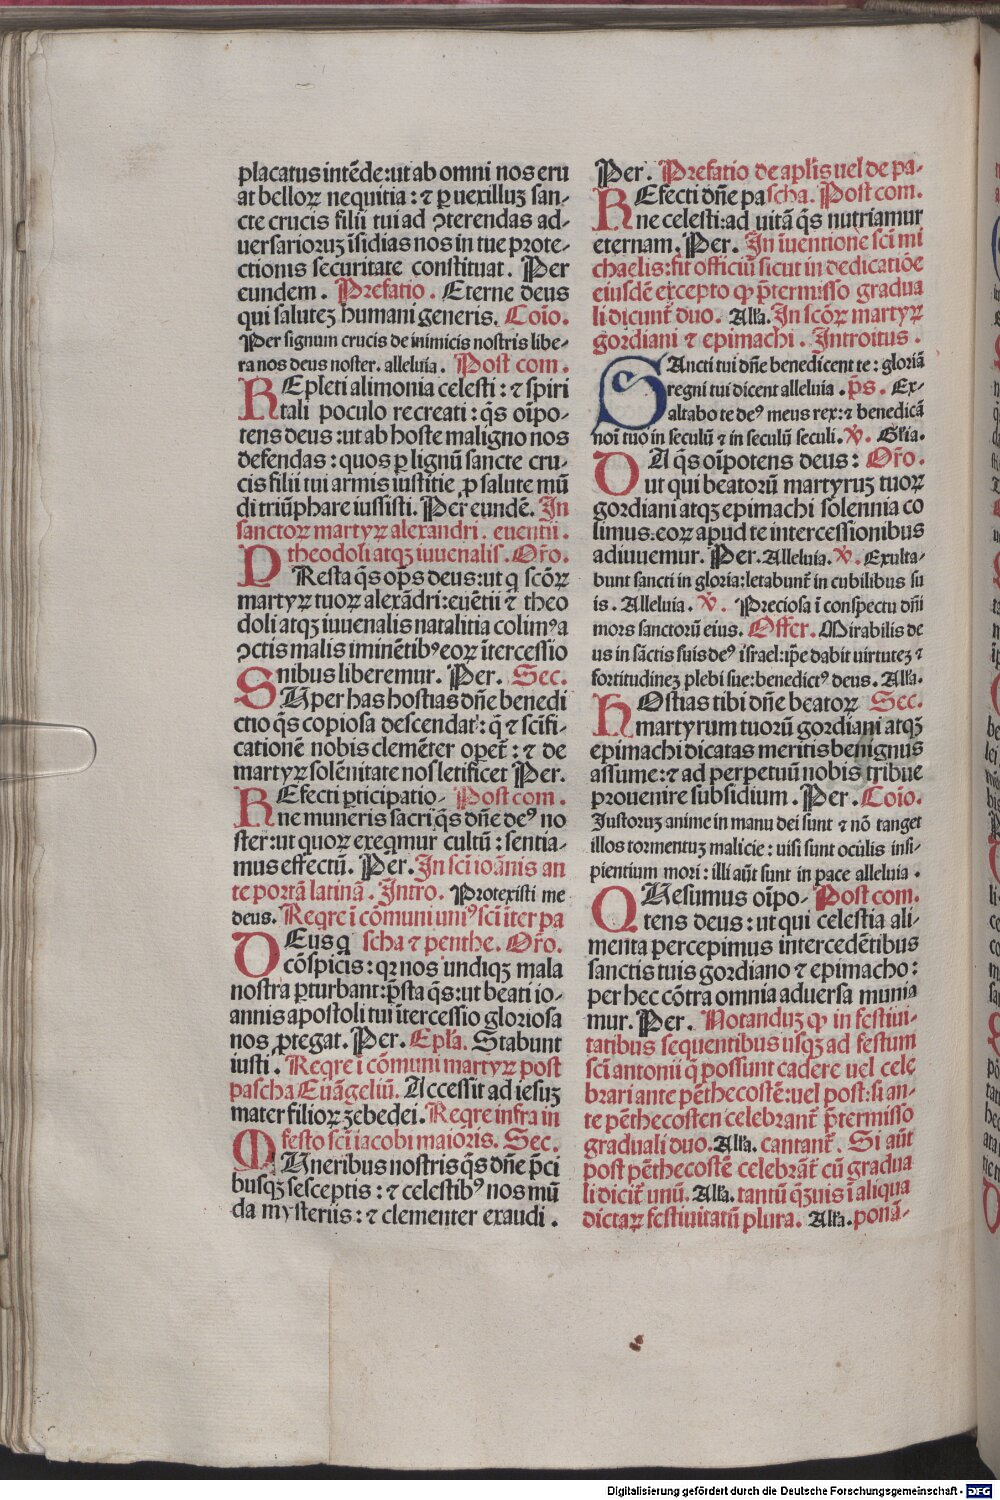 placatus intēde: ut ab omni nos eru
at belloꝝ nequitia: ⁊ ꝑ uexilluꝫ san-
cte crucis filii tui ad ꝯterendas ad-
uersarioruꝫ īsidias nos in tue prote-
ctionis securitate constituat. Per
eundem. Prefatio. Eterne deus
qui saluteꝫ humani generis. Coīo.
Per signum crucis de inimicis nostris libe-
ra nos deus noster. alleluia. Post com.
REpleti alimonia celesti: ⁊ spiri
tali poculo recreati: q̄s oīpo-
tens deus: ut ab hoste maligno nos
defendas: quos ꝑ lignū sancte cru-
cis filii tui armis iustitie ꝓ salute mū
di triūphare iussisti. Per eundē. In
sanctoꝝ martyꝝ alexandri. euentii.
theodoli atqꝫ iuuenalis. Or̄o.
PResta q̄s op̄s deus: ut q̄ scōꝝ
martyꝝ tuoꝝ alexādri: euētii ⁊ theo
doli atqꝫ iuuenalis natalitia colimꝰ a
ꝯctis malis iminētibꝰ eoꝝ ītercessio
nibus liberemur. Per. Sec.
SUper has hostias dn̄e benedi
ctio q̄s copiosa descendat: q̄ ⁊ scīfi-
cationē nobis clemēter opet̄: ⁊ de
martyꝝ solēnitate nos letificet Per.
REfecti ꝑticipatio- Post com.
ne muneris sacri q̄s dn̄e deꝰ no
ster: ut quoꝝ exeqmur cultū: sentia-
mus effectū. Per. In scī ioānis an
te portā latinā. Intro. Protexisti me
deus. Reqre ī cōmuni uniꝰ scī īter pa
DEus q scha ⁊ penthe. Or̄o.
cōspicis: qꝛ nos undiqꝫ mala
nostra ꝑturbant: p̄sta q̄s: ut beati io-
annis apostoli tui ītercessio gloriosa
nos ꝓtegat. Per. Epl̄a. Stabunt
iusti. Reqre ī cōmuni martyꝝ post
pascha Euāgeliū. Accessit ad iesuꝫ
mater filioꝝ ꝫebedei. Reqre infra in
festo scī iacobi maioris. Sec.
MUneribus nostris q̄s dn̄e p̄ci
busqꝫ sesceptis: ⁊ celestibꝰ nos mū
da mysteriis: ⁊ clementer exaudi.
Per. Prefatio de apl̄is uel de pa-
REfecti dn̄e pa scha. Post com.
ne celesti: ad uitā q̄s nutriamur
eternam. Per. In īuentione scī mi
chaelis: fit officiū sicut in dedicatiōe
eiusdē excepto ꝙ p̄termisso gradua
li dicunt̄ duo. All'a. In scōꝝ martyꝝ
gordiani ⁊ epimachi. Introitus.
SAncti tui dn̄e benedicent te: gloriā
regni tui dicent alleluia. p̄s. Ex-
altabo te deꝰ meus rex: ⁊ benedicā
noī tuo in seculū ⁊ in seculū seculi. ℣. Gl'ia.
DA q̄s oīpotens deus: Or̄o.
ut qui beatorū martyruꝫ tuoꝝ
gordiani atqꝫ epimachi solennia co
limus: eoꝝ apud te intercessionibus
adiuuemur. Per. Alleluia. ℣. Exulta-
bunt sancti in gloria: letabunt̄ in cubilibus su
is. Alleluia. ℣. Preciosa ī conspectu dn̄i
mors sanctorū eius. Offer. Mirabilis de
us in sāctis suis deꝰ israel: ip̄e dabit uirtuteꝫ ⁊
fortitudineꝫ plebi sue: benedictꝰ deus. All'a.
HOstias tibi dn̄e beatoꝝ Sec.
martyrum tuorū gordiani atqꝫ
epimachi dicatas meritis benignus
assume: ⁊ ad perpetuū nobis tribue
prouenire subsidium. Per. Coīo.
Justoruꝫ anime in manu dei sunt ⁊ nō tanget
illos tormentuꝫ malicie: uisi sunt oculis insi-
pientium mori: illi aūt sunt in pace alleluia.
QUesumus oīpo- Post com.
tens deus: ut qui celestia ali-
menta percepimus intercedētibus
sanctis tuis gordiano ⁊ epimacho:
per hec cōtra omnia aduersa munia
mur. Per. Notanduꝫ ꝙ in festiui-
tatibus sequentibus usqꝫ ad festum
scī antonii q̄ possunt cadere uel cele
brari ante pēthecostē: uel post: si an-
te pēthecosten celebrant̄ p̄termisso
graduali duo. All'a. cantant̄. Si aūt
post pēthecostē celebrāt̄ cū gradua
li dicit̄ unū. All'a. tantū qꝫuis ī aliqua
dictaꝝ festiuitatū plura. All'a. ponā-
Digitalisierung gefördert durch die Deutsche Forschungsgemeinschaft - DFG